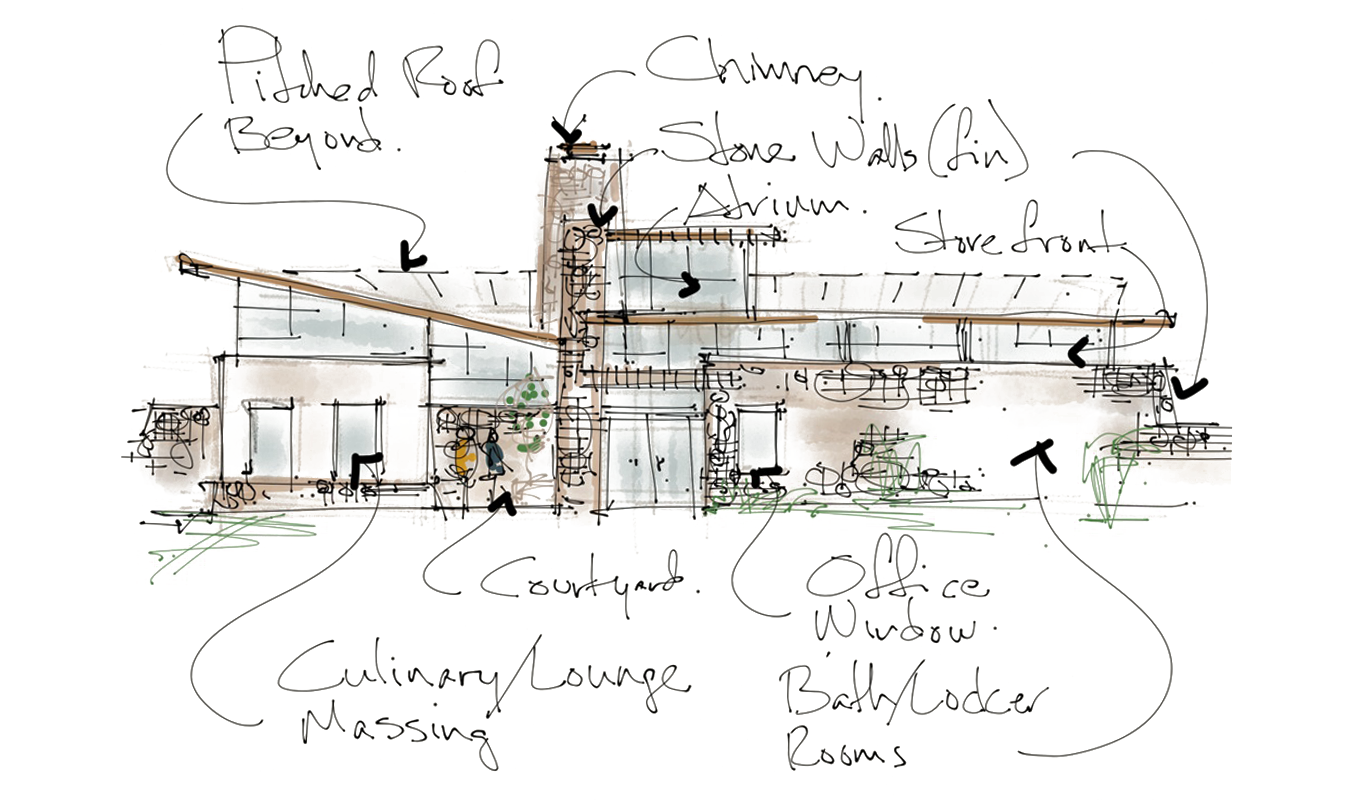 Pitched Roof
Beyond.
Chimney.
Stone Walls (fin)
Atrium.
Storefront
Courtyard.
Office
Window.
Culinary/Lounge
Massing
Bath/Locker
Rooms